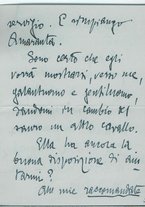 servizio. E rimpiango
Amaranta.
Sono certo che egli
vorrà mostrarsi, verso me,
galantuomo e gentiluomo,
dandomi in cambio del
un altro cavallo.
Ella ha ancora la
buona disposizione di aiu
tarmi?
mie raccomandate